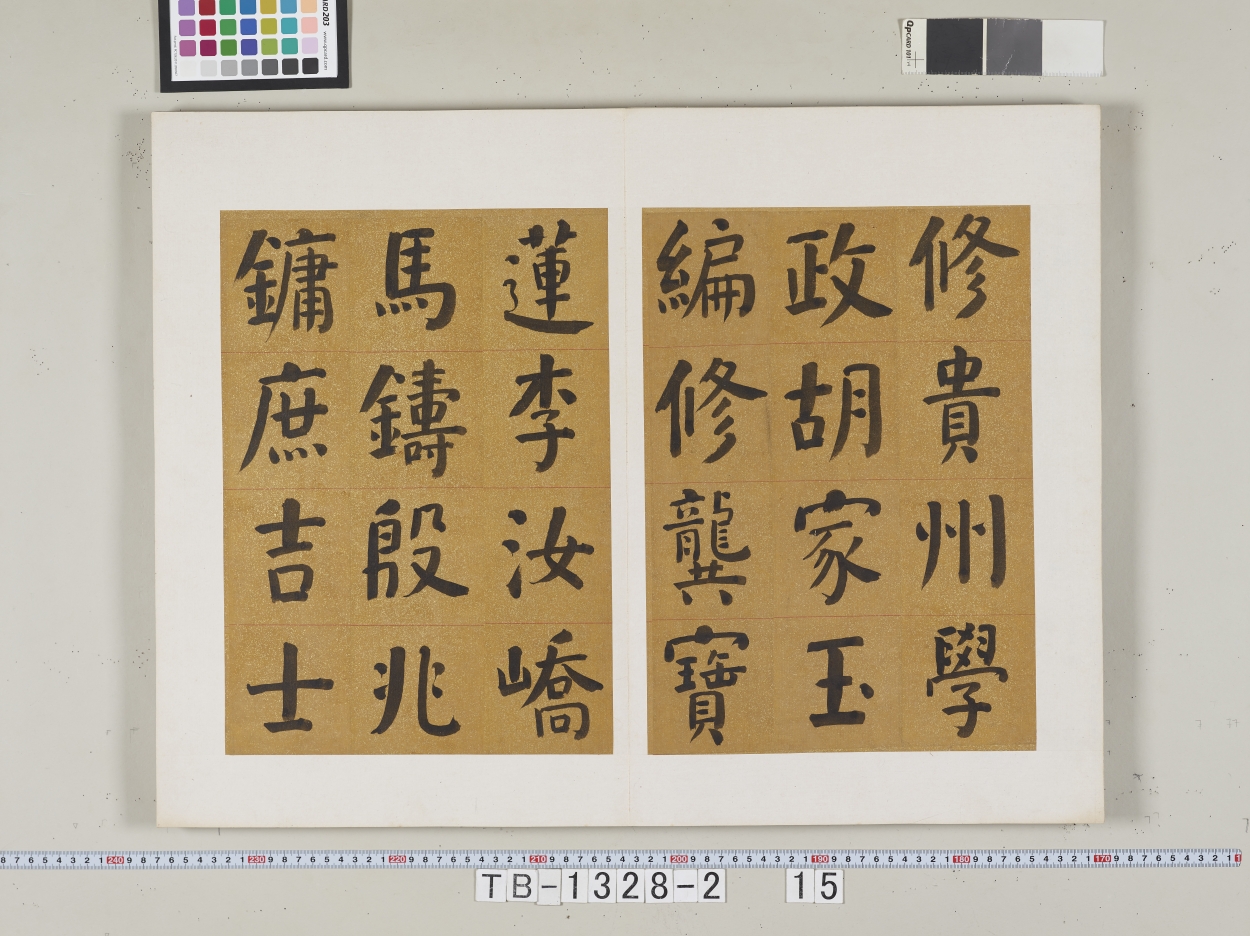 修貴州學
政胡家玉
編修龔寶
蓮李汝嶠
馬鑄殷兆
鏞庶吉士
TB-1328-2 15